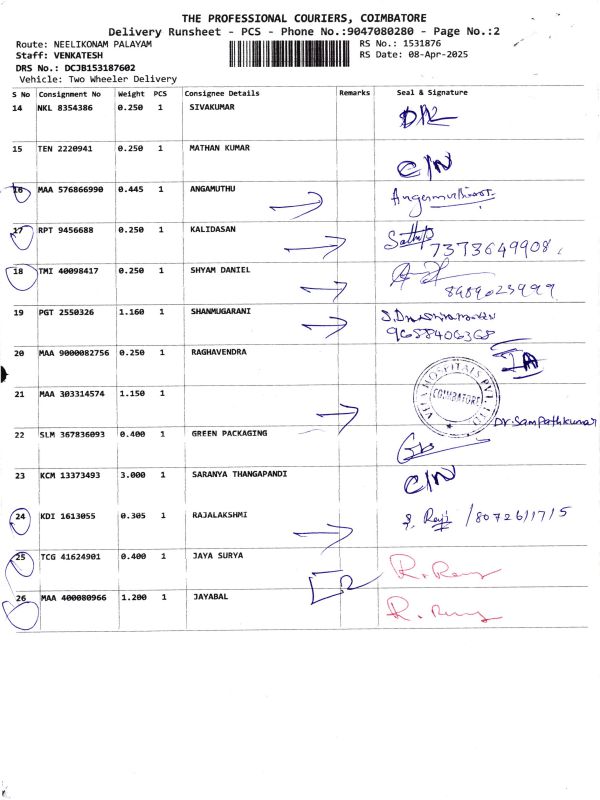 THE PROFESSIONAL COURIERS, COIMBATORE
Delivery Runsheet - PCS - Phone No.:9047080280 - Page No.:2
Route: NEELIKONAM PALAYAM RS No.: 1531876
Staff: VENKATESH RS Date: 08-Apr-2025
DRS No.: DCJB153187602
Vehicle: Two Wheeler Delivery
S No Consignment No Weight PCS Consignee Details Remarks Seal & Signature
14 NKL 8354386 0.250 1 SIVAKUMAR
15 TEN 2220941 0.250 1 MATHAN KUMAR C/N
16 MAA 576866990 0.445 1 ANGAMUTHU
17 RPT 9456688 0.250 1 KALIDASAN 7373649908
18 TMI 40098417 0.250 1 SHYAM DANIEL 8489025999
19 PGT 2550326 1.160 1 SHANMUGARANI
96588406368
20 MAA 9000082756 0.250 1 RAGHAVENDRA
21 MAA 303314574 1.150 1 HOSPITALS PVT. LTD COIMBATORE
Dr. Sampathkumar
22 SLM 367836093 0.400 1 GREEN PACKAGING
23 KCM 13373493 3.000 1 SARANYA THANGAPANDI C/N
24 KDI 1613055 0.305 1 RAJALAKSHMI Raji /8072611715
25 TCG 41624901 0.400 1 JAYA SURYA
26 MAA 400080966 1.200 1 JAYABAL